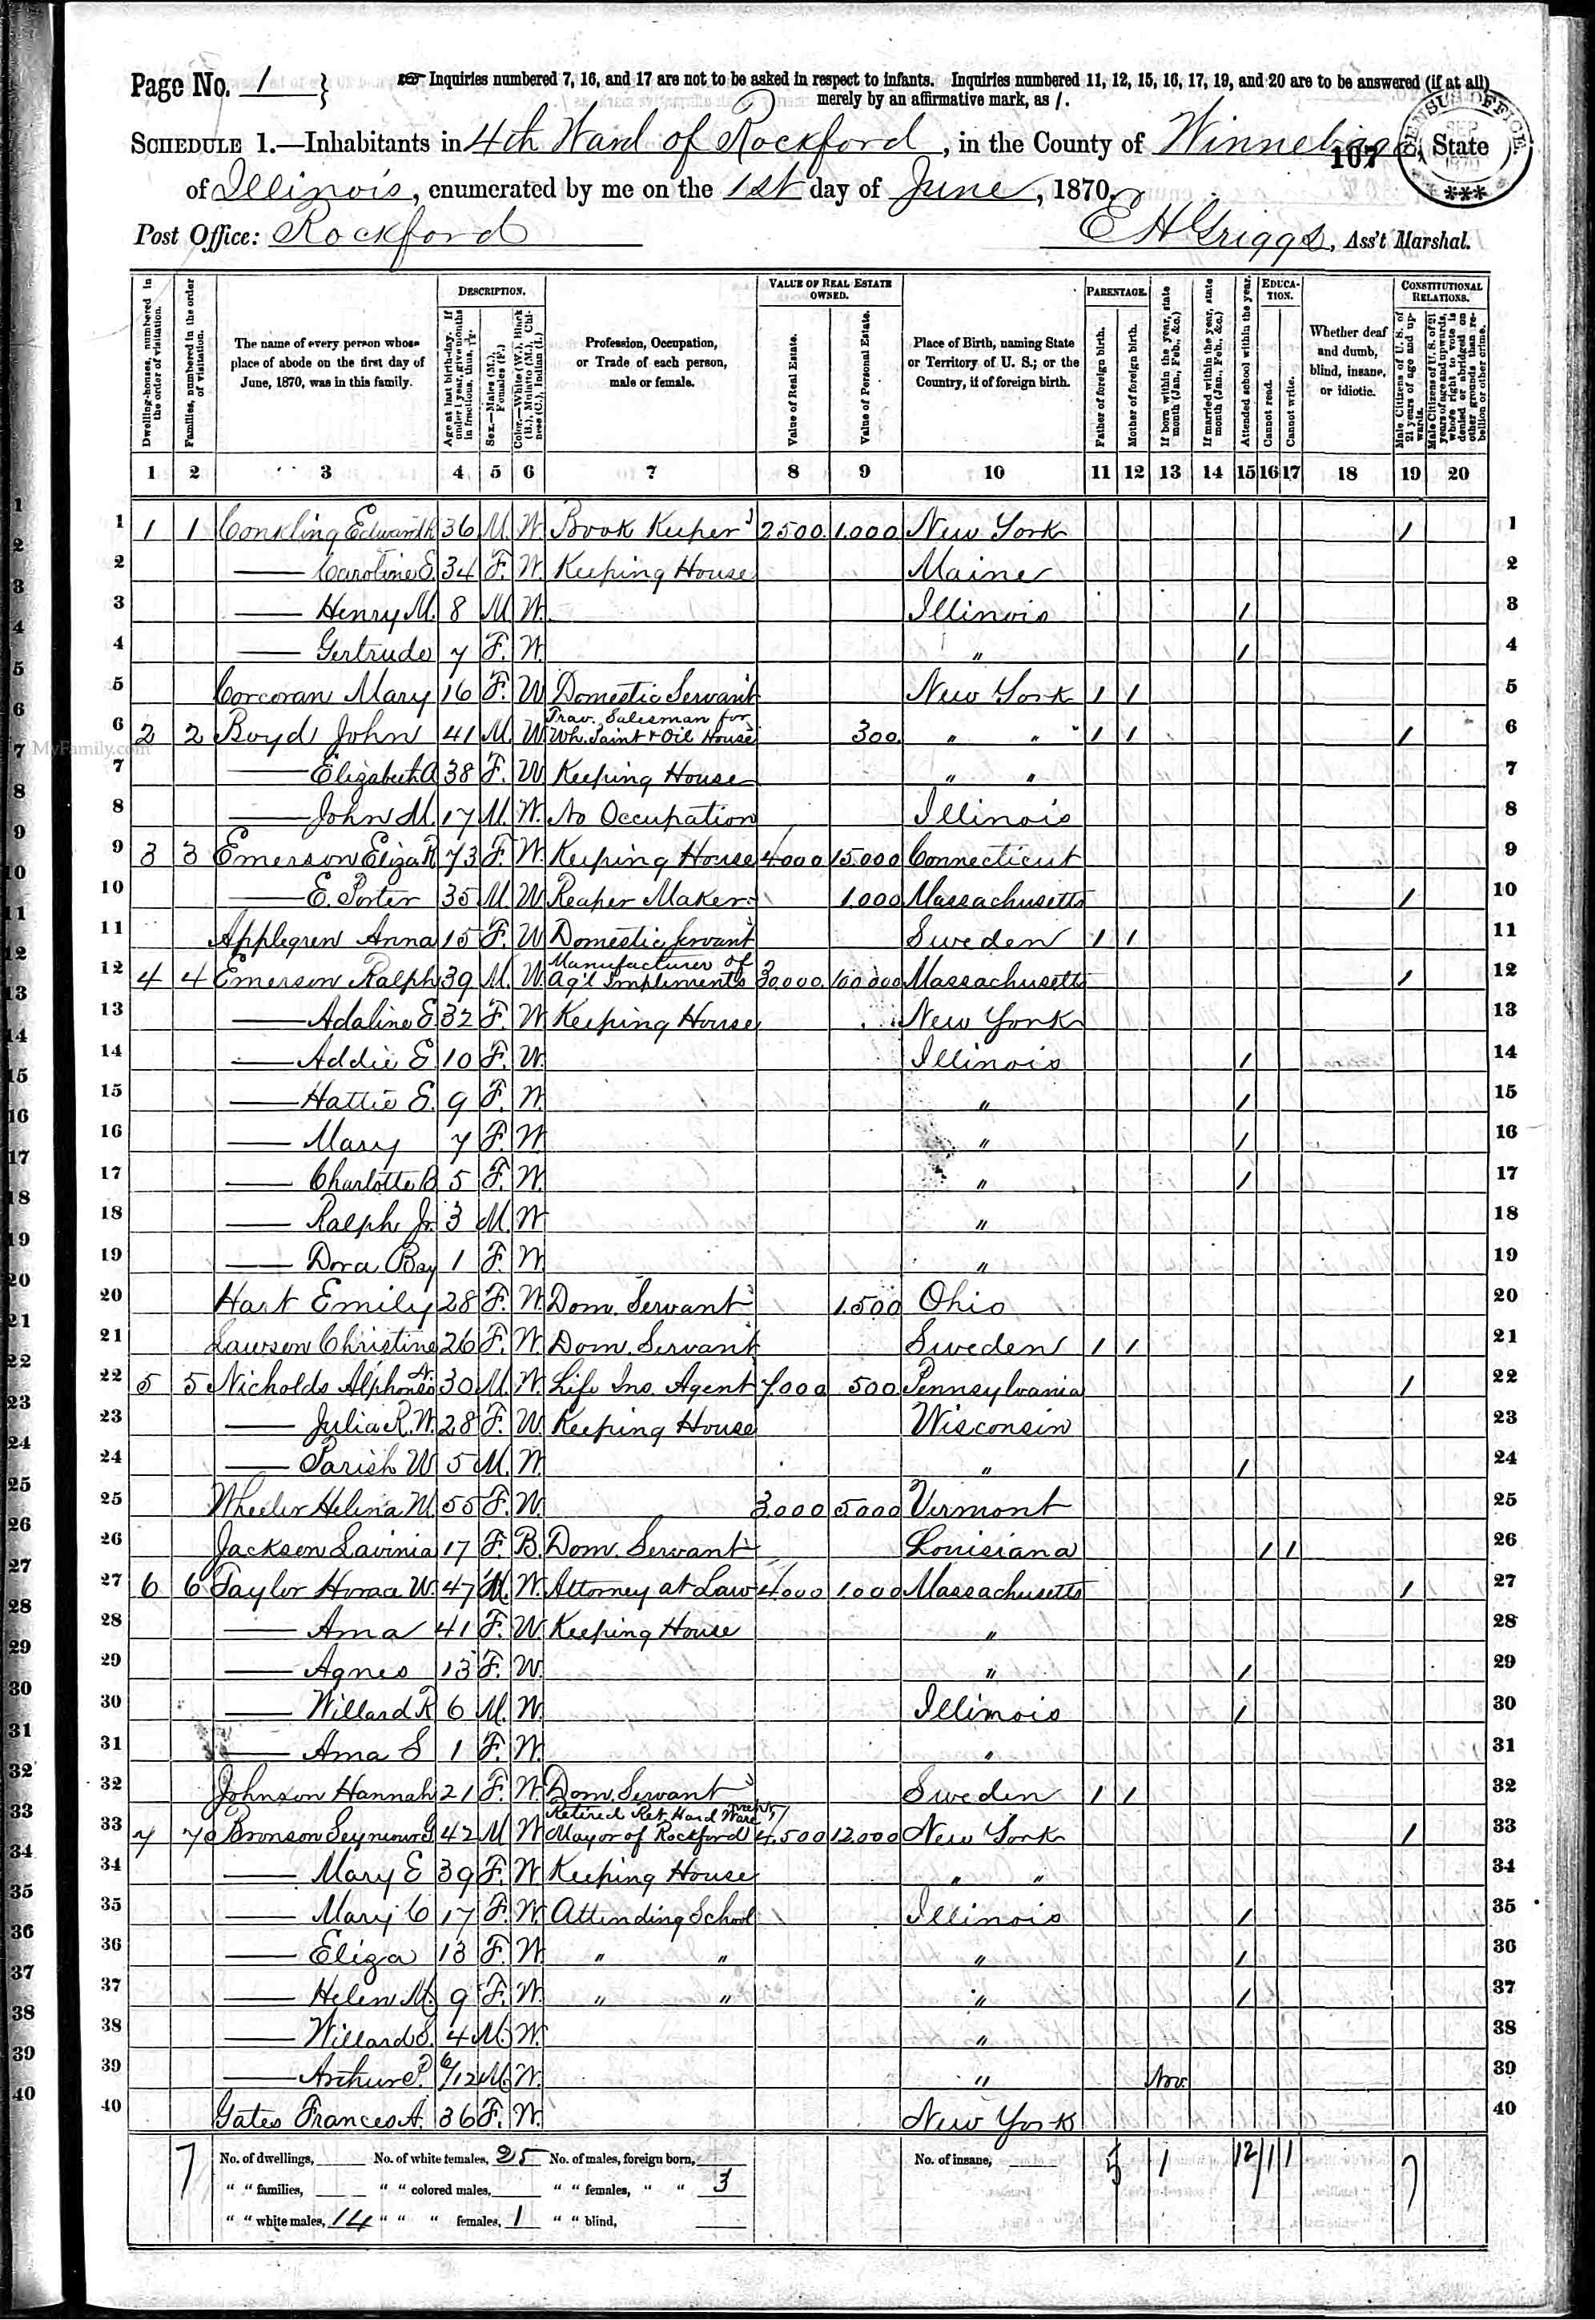 Page No. 1 } Inquiries numbered 7, 16, and 17 are not to be asked in respect to infants. Inquiries numbered 11, 12, 15, 16, 17, 19, and 20 are to be answered (if at all)
merely by an affirmative mark, as /.
SCHEDULE 1.—Inhabitants in 4th Ward of Rockford, in the County of Winnebago, State
107
CENSUS OFFICE.
of Illinois, enumerated by me on the 1st day of June, 1870.
Post Office: Rockford E H Griggs, Ass't Marshal.
Dwelling-houses, numbered in the order of visitation.
Families, numbered in the order of visitation.
The name of every person whose place of abode on the first day of June, 1870, was in this family.
DESCRIPTION.
Age at last birth-day. If under 1 year, give months in fractions, thus, 3/12.
Sex.—Males (M.), Females (F.)
Color.—White (W.), Black (B.), Mulatto (M.), Chinese (C.), Indian (I.)
Profession, Occupation, or Trade of each person, male or female.
VALUE OF REAL ESTATE OWNED.
Value of Real Estate.
Value of Personal Estate.
Place of Birth, naming State or Territory of U. S.; or the Country, if of foreign birth.
PARENTAGE.
Father of foreign birth.
Mother of foreign birth.
If born within the year, state month (Jan., Feb., &c.)
If married within the year, state month (Jan., Feb., &c.)
Attended school within the year.
EDUCATION.
Cannot read.
Cannot write.
Whether deaf and dumb, blind, insane, or idiotic.
CONSTITUTIONAL RELATIONS.
Male Citizens of U. S. of 21 years of age and upwards.
Male Citizens of U. S. of 21 years of age and upwards, whose right to vote is denied or abridged on other grounds than rebellion or other crime.
1 2 3 4 5 6 7 8 9 10 11 12 13 14 15 16 17 18 19 20
1 1 1 Conkling Edward R. 36 M. W. Book Keeper 2500. 1.000 New York / 1
2 —— Caroline E. 34 F. W. Keeping House Maine 2
3 —— Henry M. 8 M W. Illinois / 3
4 —— Gertrude 7 F. W. " / 4
5 Corcoran Mary 16 F. W Domestic Servant New York / / 5
6 2 2 Boyd John 41 M. W Trav. Salesman for Wh. Paint & Oil House 300. " " / / / 6
MyFamily.com
7 —— Elizabeth A 38 F. W Keeping House " " 7
8 —— John M. 17 M. W. No Occupation Illinois 8
9 3 3 Emerson Eliza R 73 F. W. Keeping House 4000 15.000 Connecticut 9
10 —— E. Porter 35 M. W Reaper Maker. 1.000 Massachusetts / 10
11 Applegren Anna 15 F. W Domestic Servant Sweden / / 11
12 4 4 Emerson Ralph 39 M. W. Manufacturer of Ag'l Impliments 30.000. 100 000 Massachusetts / 12
13 —— Adaline E. 32 F. W Keeping House New York 13
14 —— Addie E 10 F. W. Illinois / 14
15 —— Hattie E. 9 F. W. " / 15
16 —— Mary 7 F. W. " / 16
17 —— Charlotte B 5 F. W. " / 17
18 —— Ralph Jr. 3 M. W " 18
19 —— Dora Bay 1 F. W. " 19
20 Hart Emily 28 F. W. Dom. Servant 1.500 Ohio 20
21 Lawson Christine 26 F. W. Dom. Servant Sweden / / 21
22 5 5 Nicholds Alphonso 30 M. W. Life Ins. Agent 7.000 500 Pennsylvania / 22
23 —— Julia R. W. 28 F. W. Keeping House Wisconsin 23
24 —— Parish W 5 M. W. " / 24
25 Wheeler Helina M. 55 F. W. 3.000 5000 Vermont 25
26 Jackson Lavinia 17 F. B. Dom. Servant Louisiana / / 26
27 6 6 Taylor Horace W. 47 M. W. Attorney at Law 4.000 1.000 Massachusetts / 27
28 —— Ama 41 F. W. Keeping House " 28
29 —— Agnes 13 F. W. " / 29
30 —— Willard R 6 M. W. Illinois / 30
31 —— Ama S 1 F. W. " 31
32 Johnson Hannah 21 F. W. Dom. Servant Sweden / / 32
33 7 7 Bronson Seymour G 42 M W Retired Ret. Hard Ware Mayor of Rockford 4.500 12.000 New York / 33
34 —— Mary E 39 F. W Keeping House " " 34
35 —— Mary C 17 F. W. Attending School Illinois / 35
36 —— Eliza 13 F. W. " " " / 36
37 —— Helen M. 9 F. W. " " " / 37
38 —— Willard S. 4 M. W. " 38
39 —— Arthur P. 6/12 M. W. " Nov. 39
40 Gates Frances A. 36 F. W. New York 40
7 No. of dwellings, No. of white females, 25 No. of males, foreign born, No. of insane, 5 1 12 1 1 7
" " families, " " colored males, " " females, " " 3
" " white males, 14 " " " females, 1 " " blind,